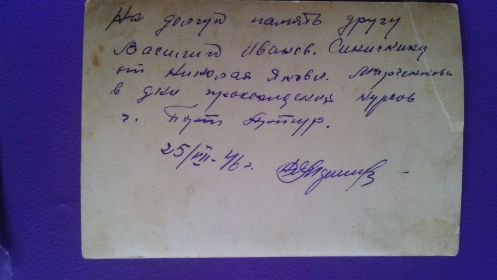 На долгую память другу
Василию Иванов. Синишкину
от Николая Яковл. Марченкова
в дни прохождения курсов
г. Порт Артур.
25/VIII-46 г.